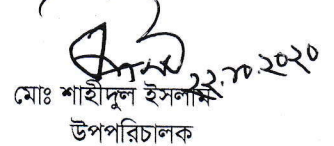 ২২.১০.২০২০
মোঃ শাহীদুল ইসলাম
উপপরিচালক